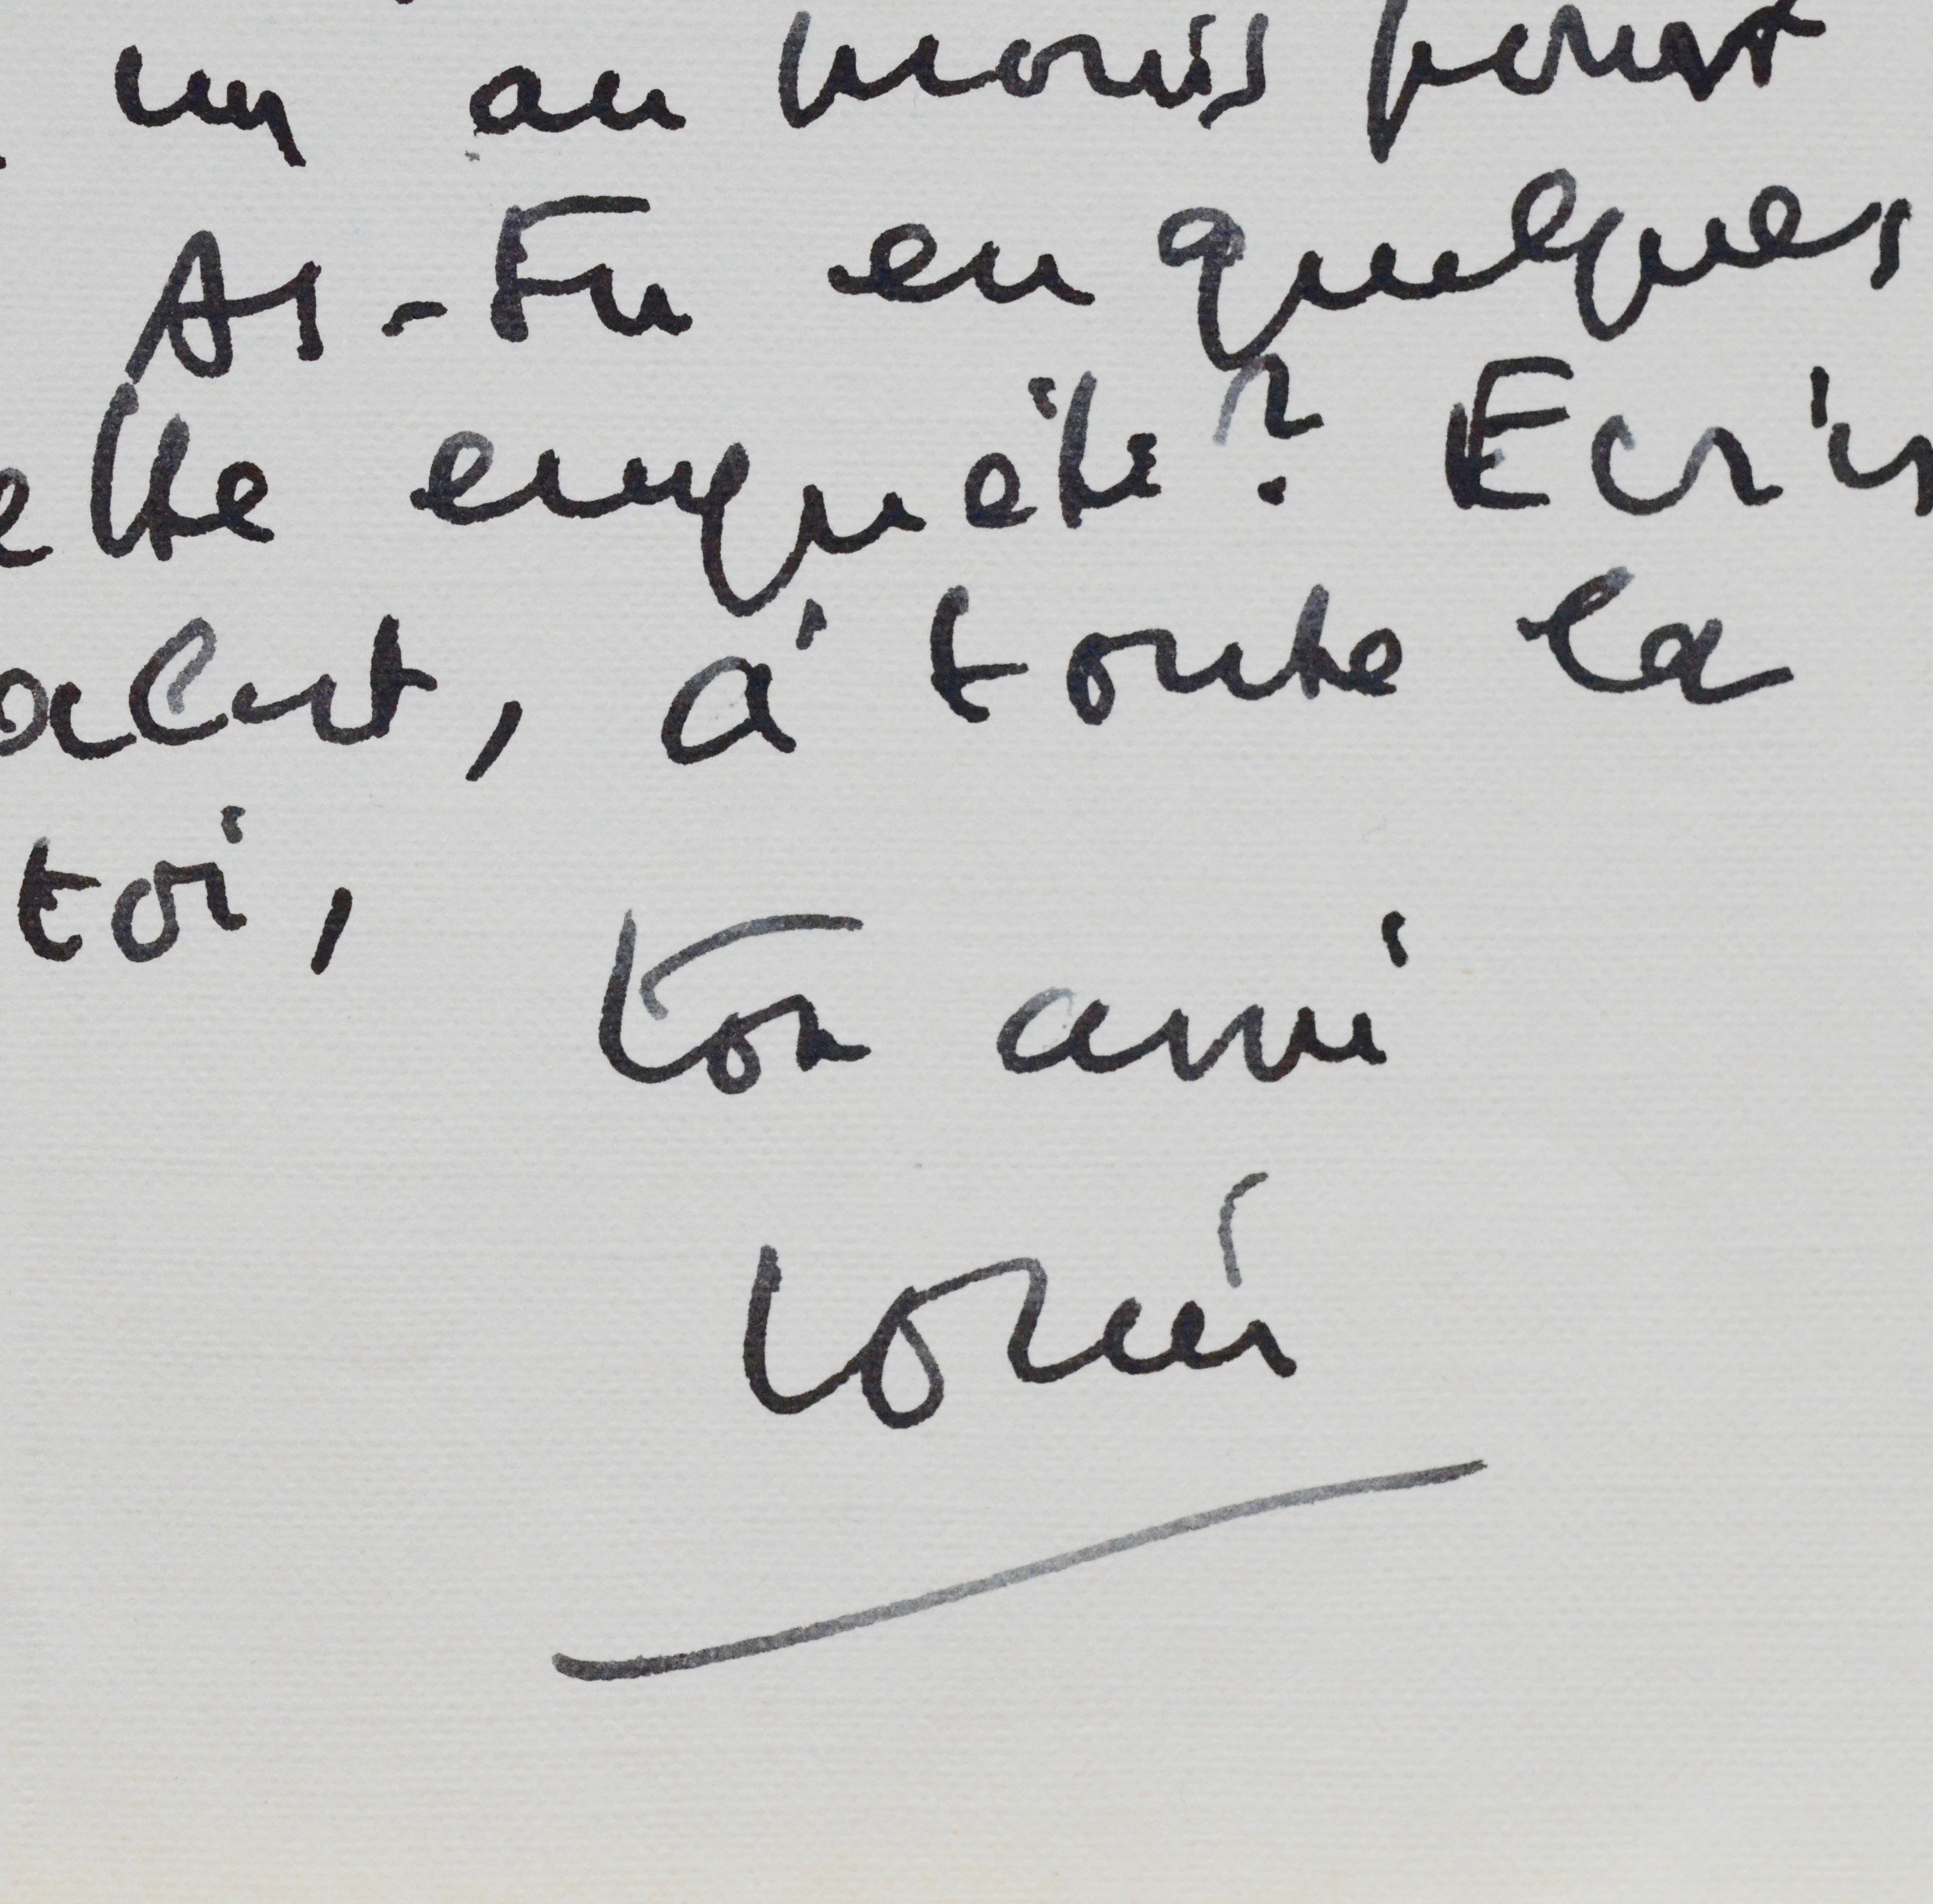 un au moins pour
As-tu eu quelques
elle enquête? Ecris
alut, à toute la
toi,
ton ami
Louis